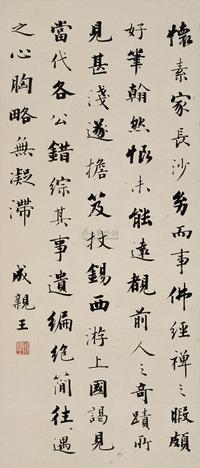 懷素家長沙幼而事佛經禪之暇頗
好筆翰然恨未能遠覩前人之奇蹟所
見甚淺遂擔笈杖錫西遊上國謁見
當代名公錯綜其事遺編絶簡往〻遇
之心胸略無凝滯 成親王